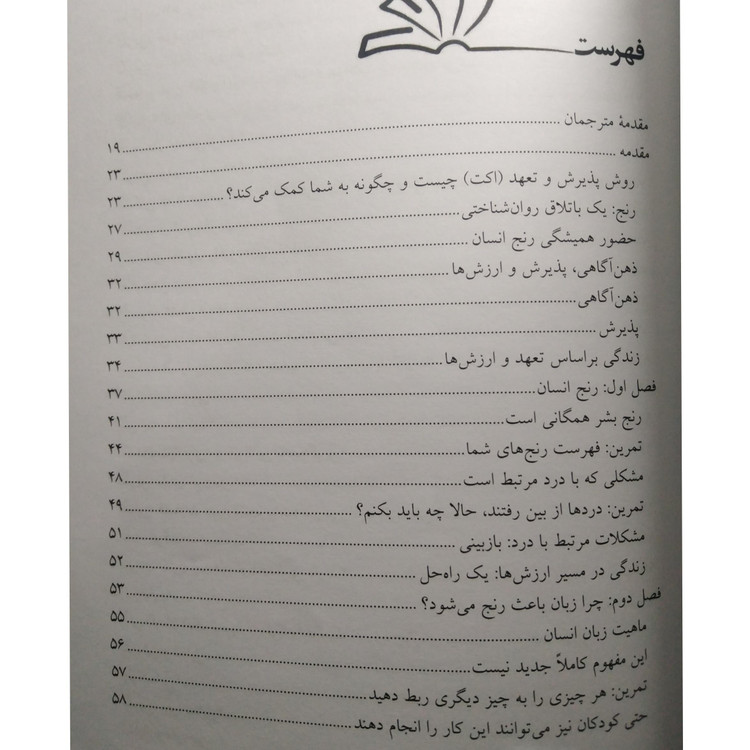 فهرست
مقدمهٔ مترجمان ........ ۱۹
مقدمه ........ ۲۳
روش پذیرش و تعهد (اکت) چیست و چگونه به شما کمک می‌کند؟ ........ ۲۳
رنج: یک باتلاق روان‌شناختی ........ ۲۷
حضور همیشگی رنج انسان ........ ۲۹
ذهن‌آگاهی، پذیرش و ارزش‌ها ........ ۳۲
ذهن‌آگاهی ........ ۳۲
پذیرش ........ ۳۳
زندگی براساس تعهد و ارزش‌ها ........ ۳۴
فصل اول: رنج انسان ........ ۳۷
رنج بشر همگانی است ........ ۴۱
تمرین: فهرست رنج‌های شما ........ ۴۴
مشکلی که با درد مرتبط است ........ ۴۸
تمرین: دردها از بین رفتند، حالا چه باید بکنم؟ ........ ۴۹
مشکلات مرتبط با درد: بازبینی ........ ۵۱
زندگی در مسیر ارزش‌ها: یک راه‌حل ........ ۵۲
فصل دوم: چرا زبان باعث رنج می‌شود؟ ........ ۵۳
ماهیت زبان انسان ........ ۵۵
این مفهوم کاملاً جدید نیست ........ ۵۶
تمرین: هر چیزی را به چیز دیگری ربط دهید ........ ۵۷
حتی کودکان نیز می‌توانند این کار را انجام دهند ........ ۵۸